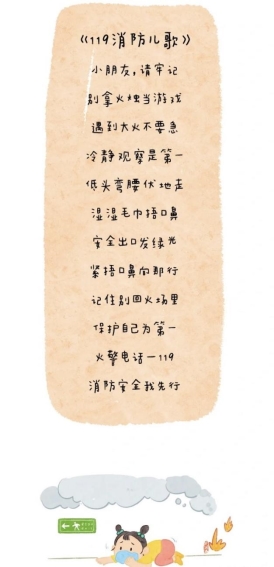 《119消防儿歌》
小朋友，请牢记
别拿火烛当游戏
遇到大火不要急
冷静观察是第一
低头弯腰伏地走
湿湿毛巾捂口鼻
安全出口发绿光
紧捂口鼻向那行
记住别回火场里
保护自己为第一
火警电话一119
消防安全我先行